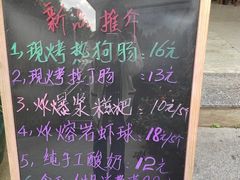 新品推介
1,现烤热狗肠:16元
2,现烤拉丁肠:13元
3.火爆浆糍粑:10元/5个
4,火熔岩虾球:18元/5个
5,纯手工酸奶:12元